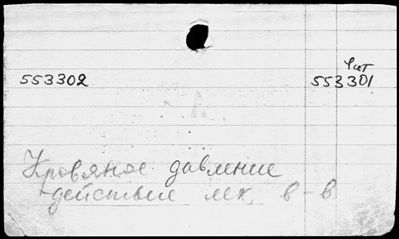 553302
553301
Кровяное давление
действие лек. в-в